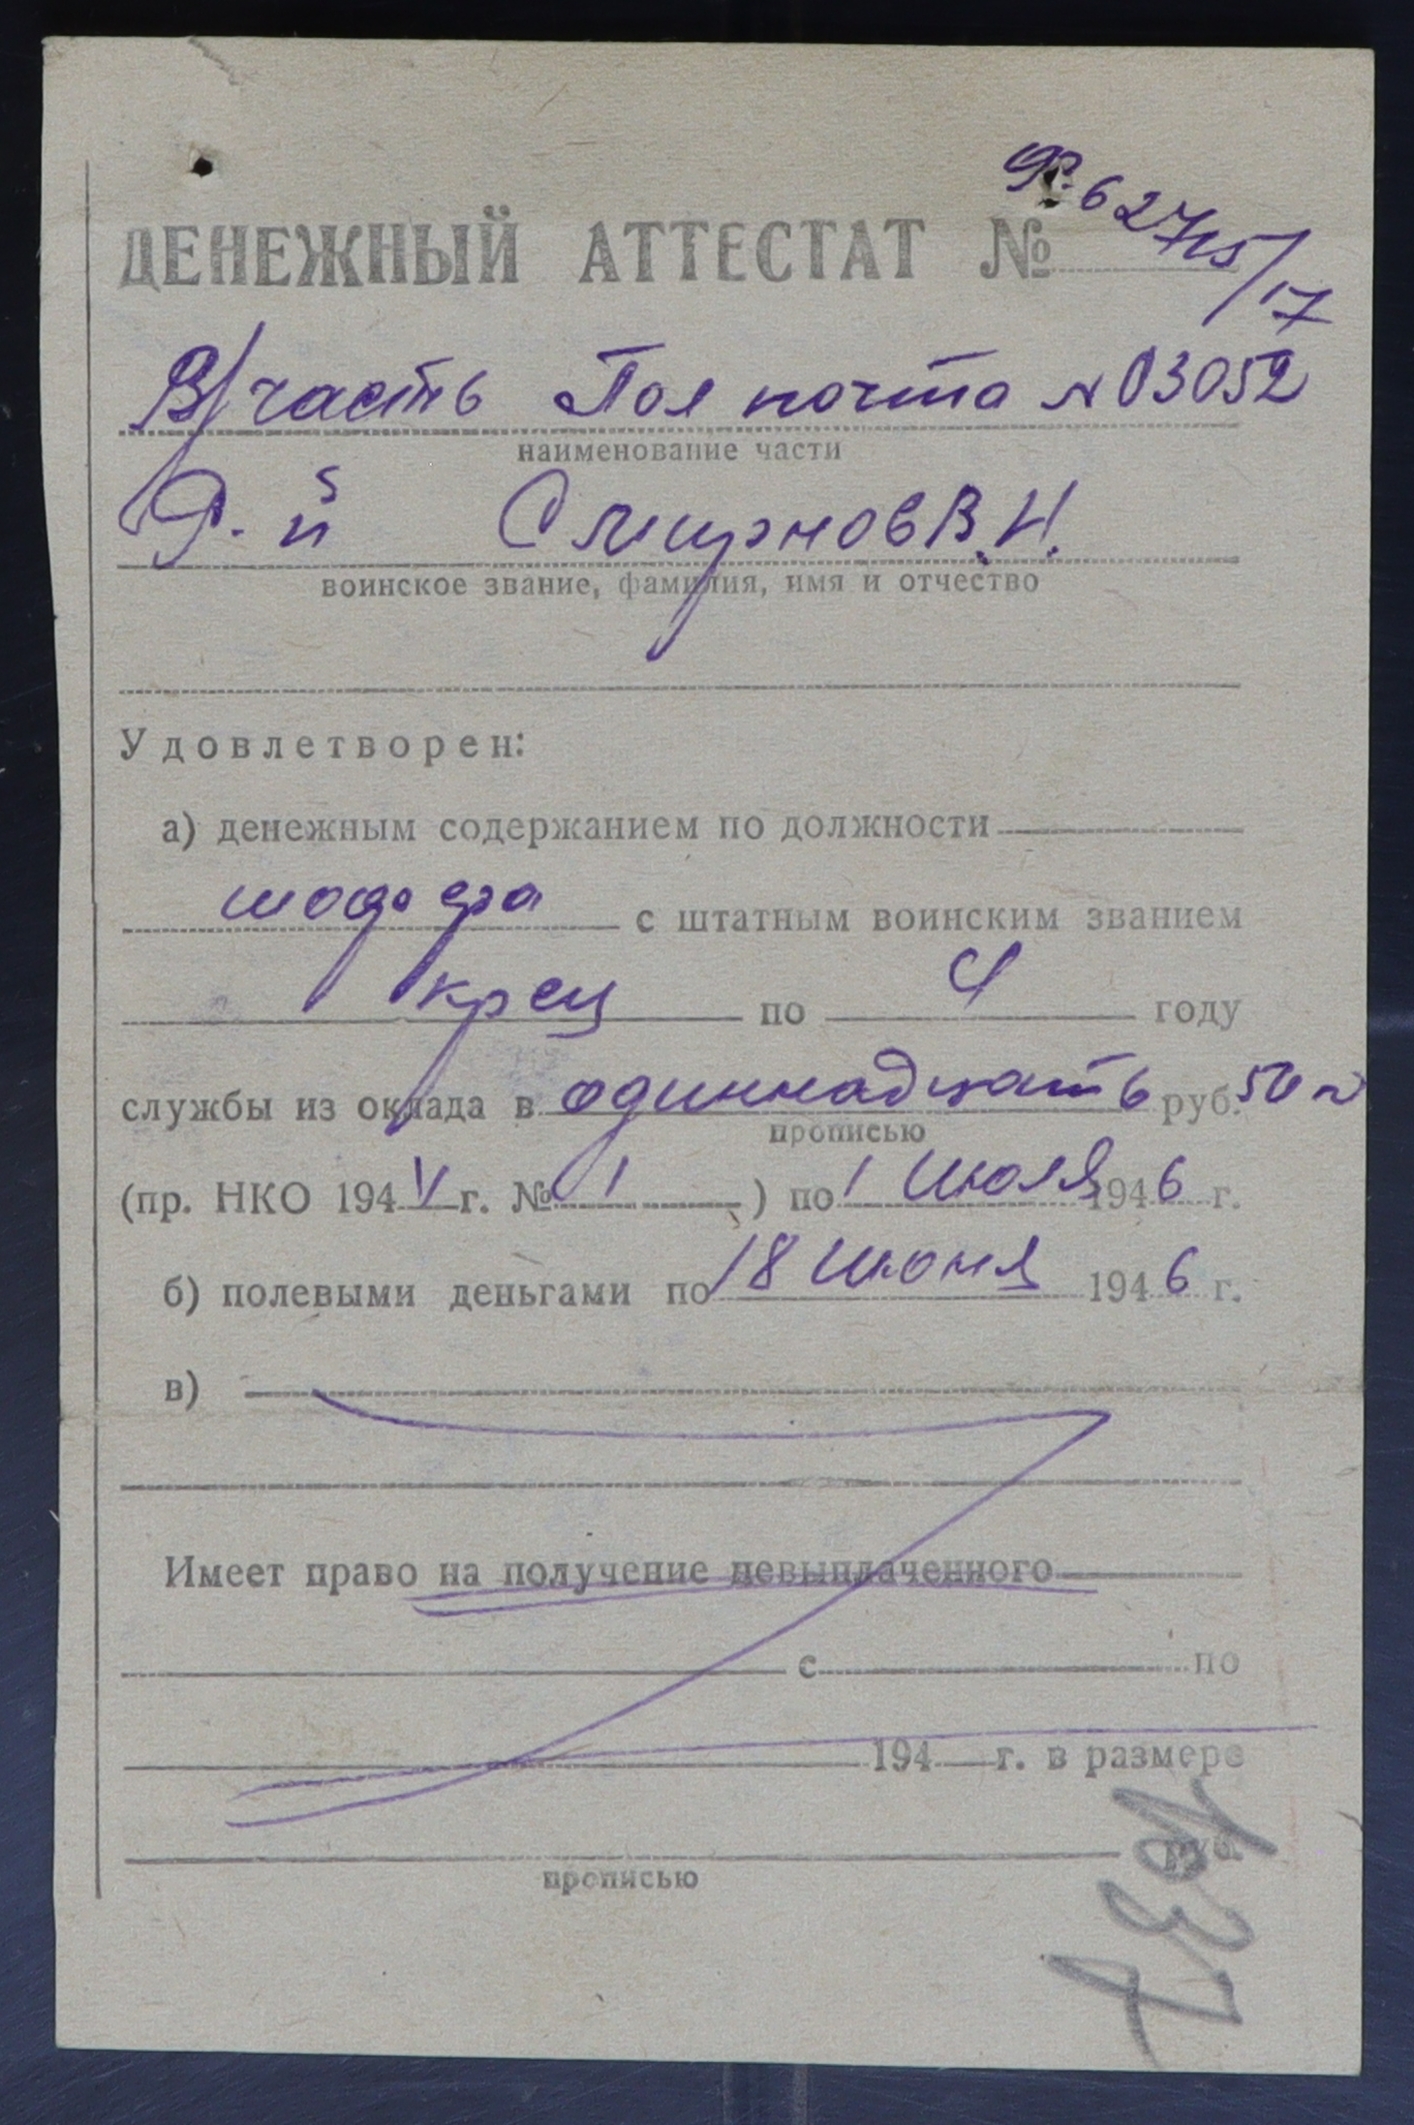 ДЕНЕЖНЫЙ АТТЕСТАТ № 62715/17
В/часть Пол почта № 03052
наименование части
Смирнов В.И.
воинское звание, фамилия, имя и отчество
Удовлетворен:
а) денежным содержанием по должности
шофера с штатным воинским званием
по 4 году
службы из оклада в одиннадцать руб. 50 к
прописью
(пр. НКО 194 V г. № 1 ) по 1 Июля 1946 г.
б) полевыми деньгами по 18 Июня 1946 г.
в)
Имеет право на получение невыплаченного
с по
194 г. в размере
руб.
прописью